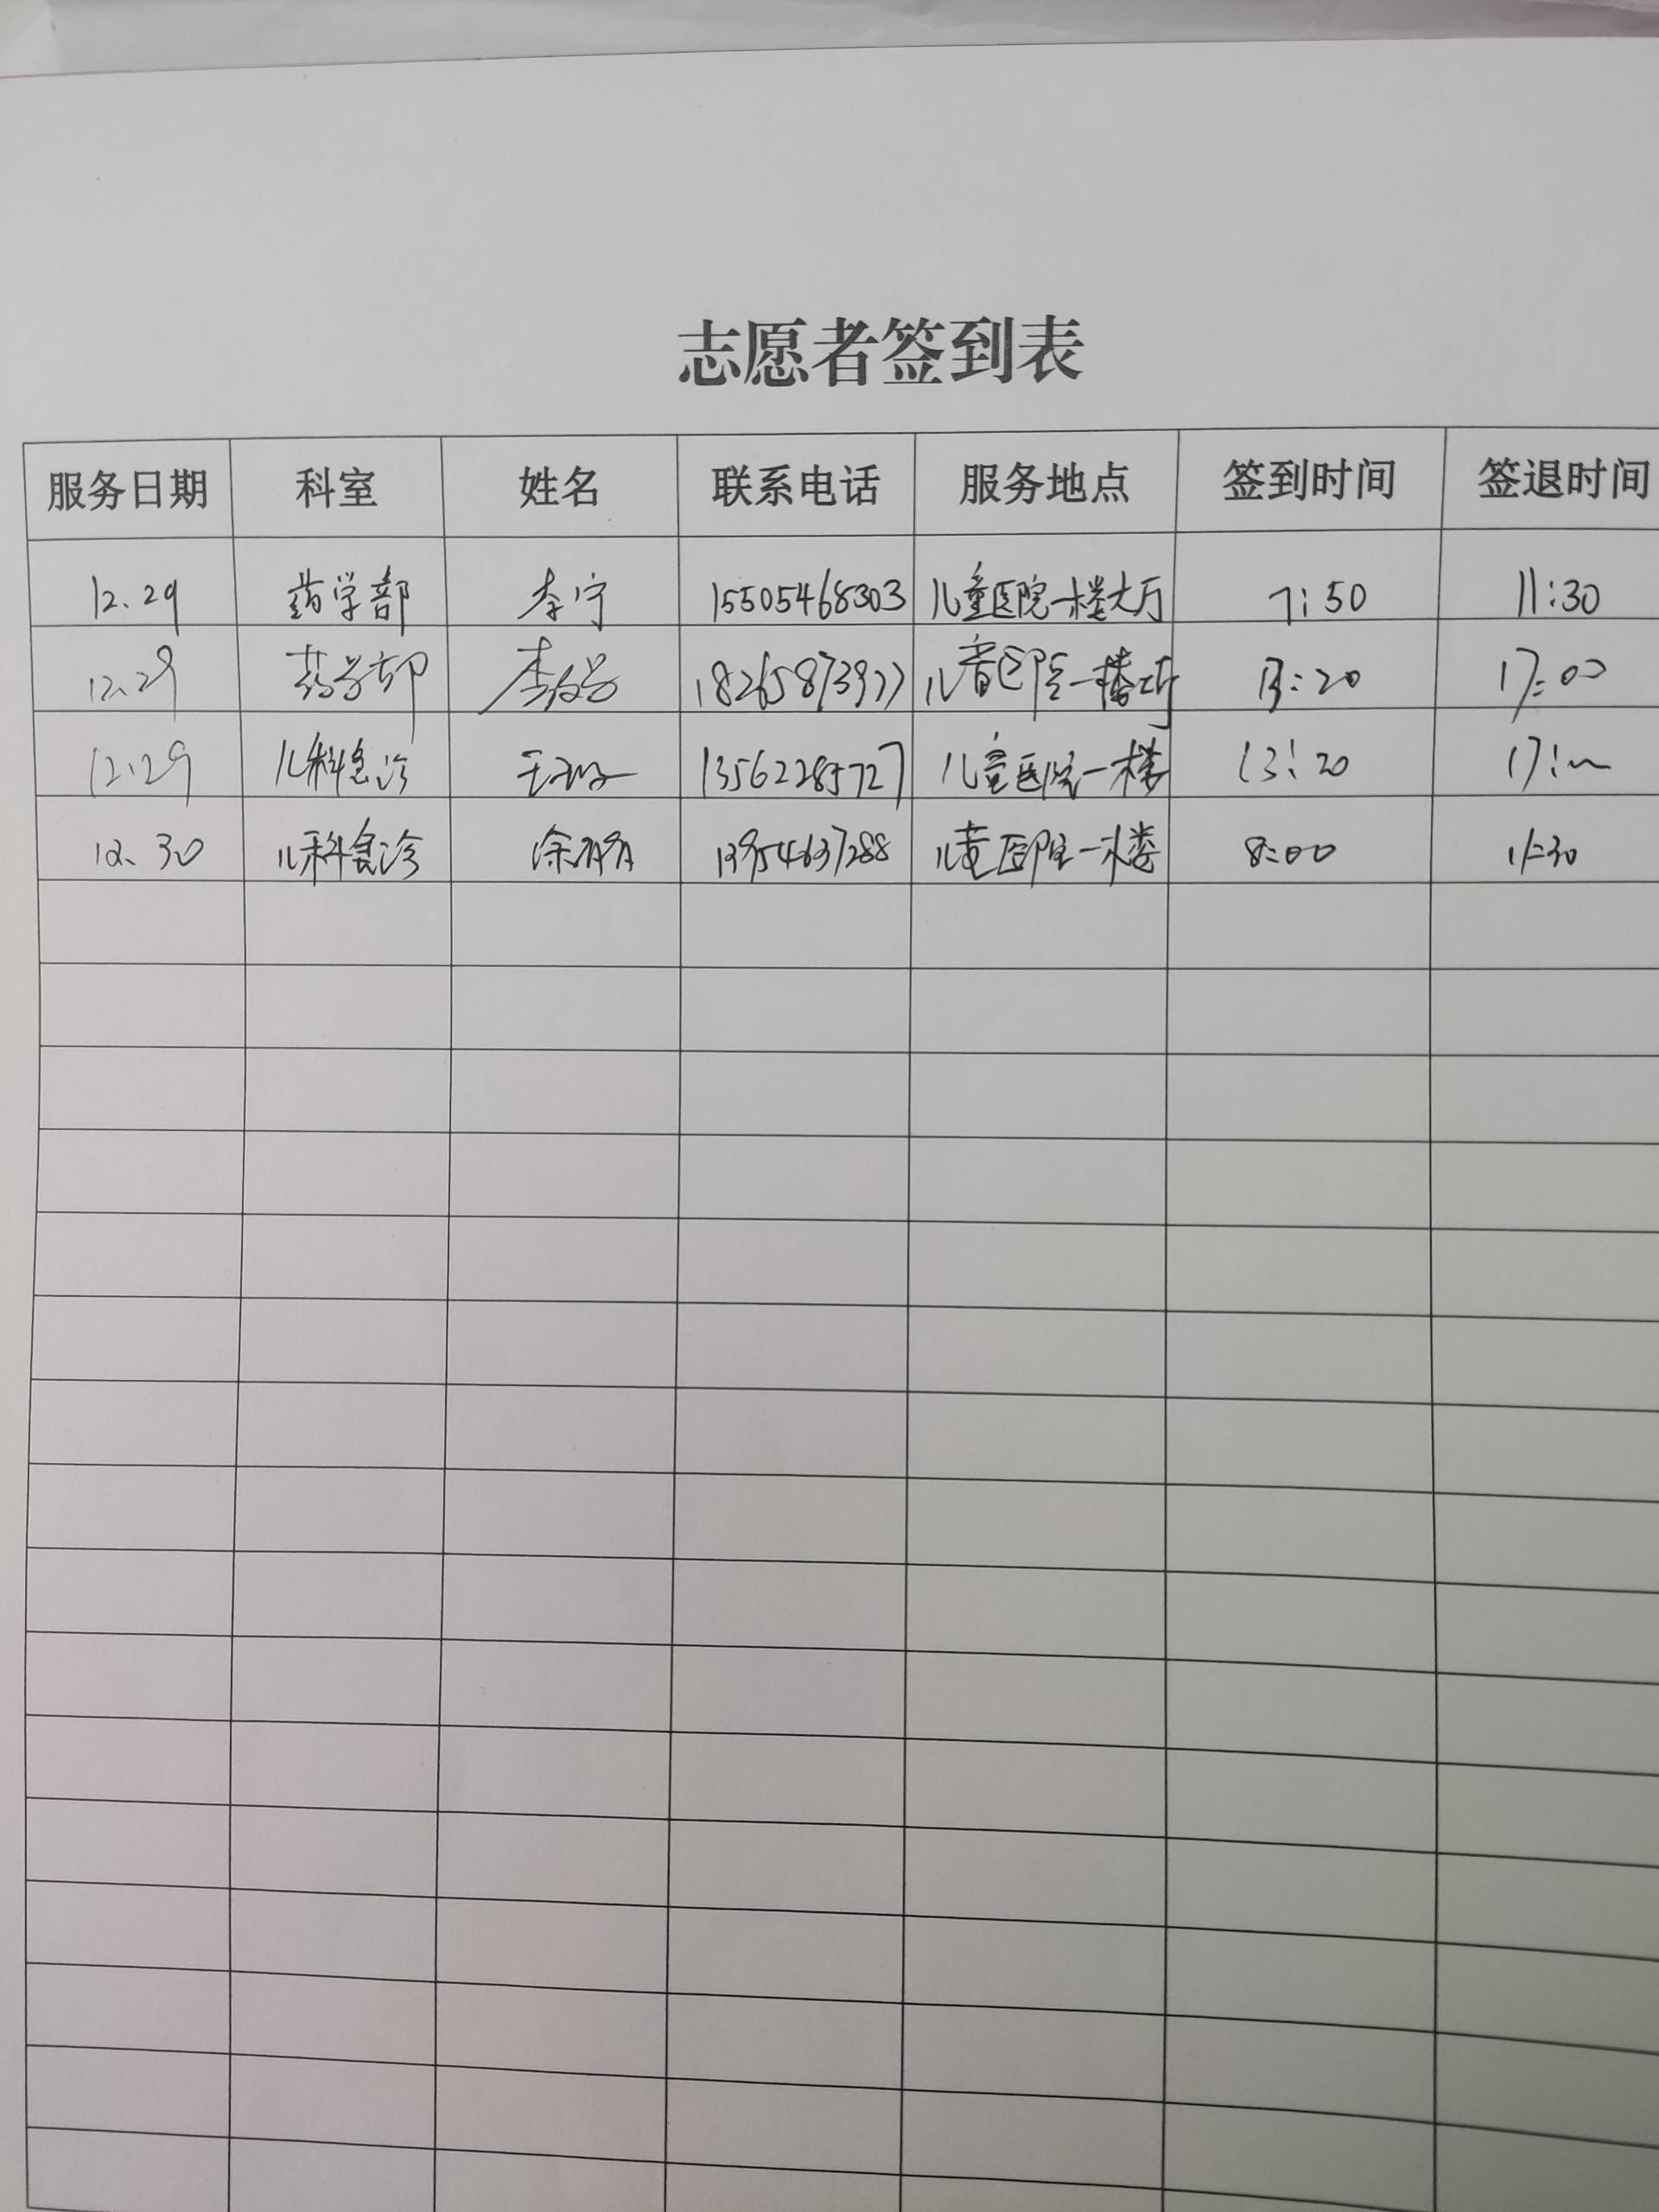 志愿者签到表
服务日期 科室 姓名 联系电话 服务地点 签到时间 签退时间
12.29 药学部 李宁 15505468303 儿童医院一楼大厅 7:50 11:30
12.29 药学部 李 18265873977 儿童医院一楼大厅 13:20 17:00
12.29 儿科急诊 王 13562285727 儿童医院一楼 13:20 17:
12.30 儿科急诊 徐 13954637288 儿童医院一楼 8:00 11:30